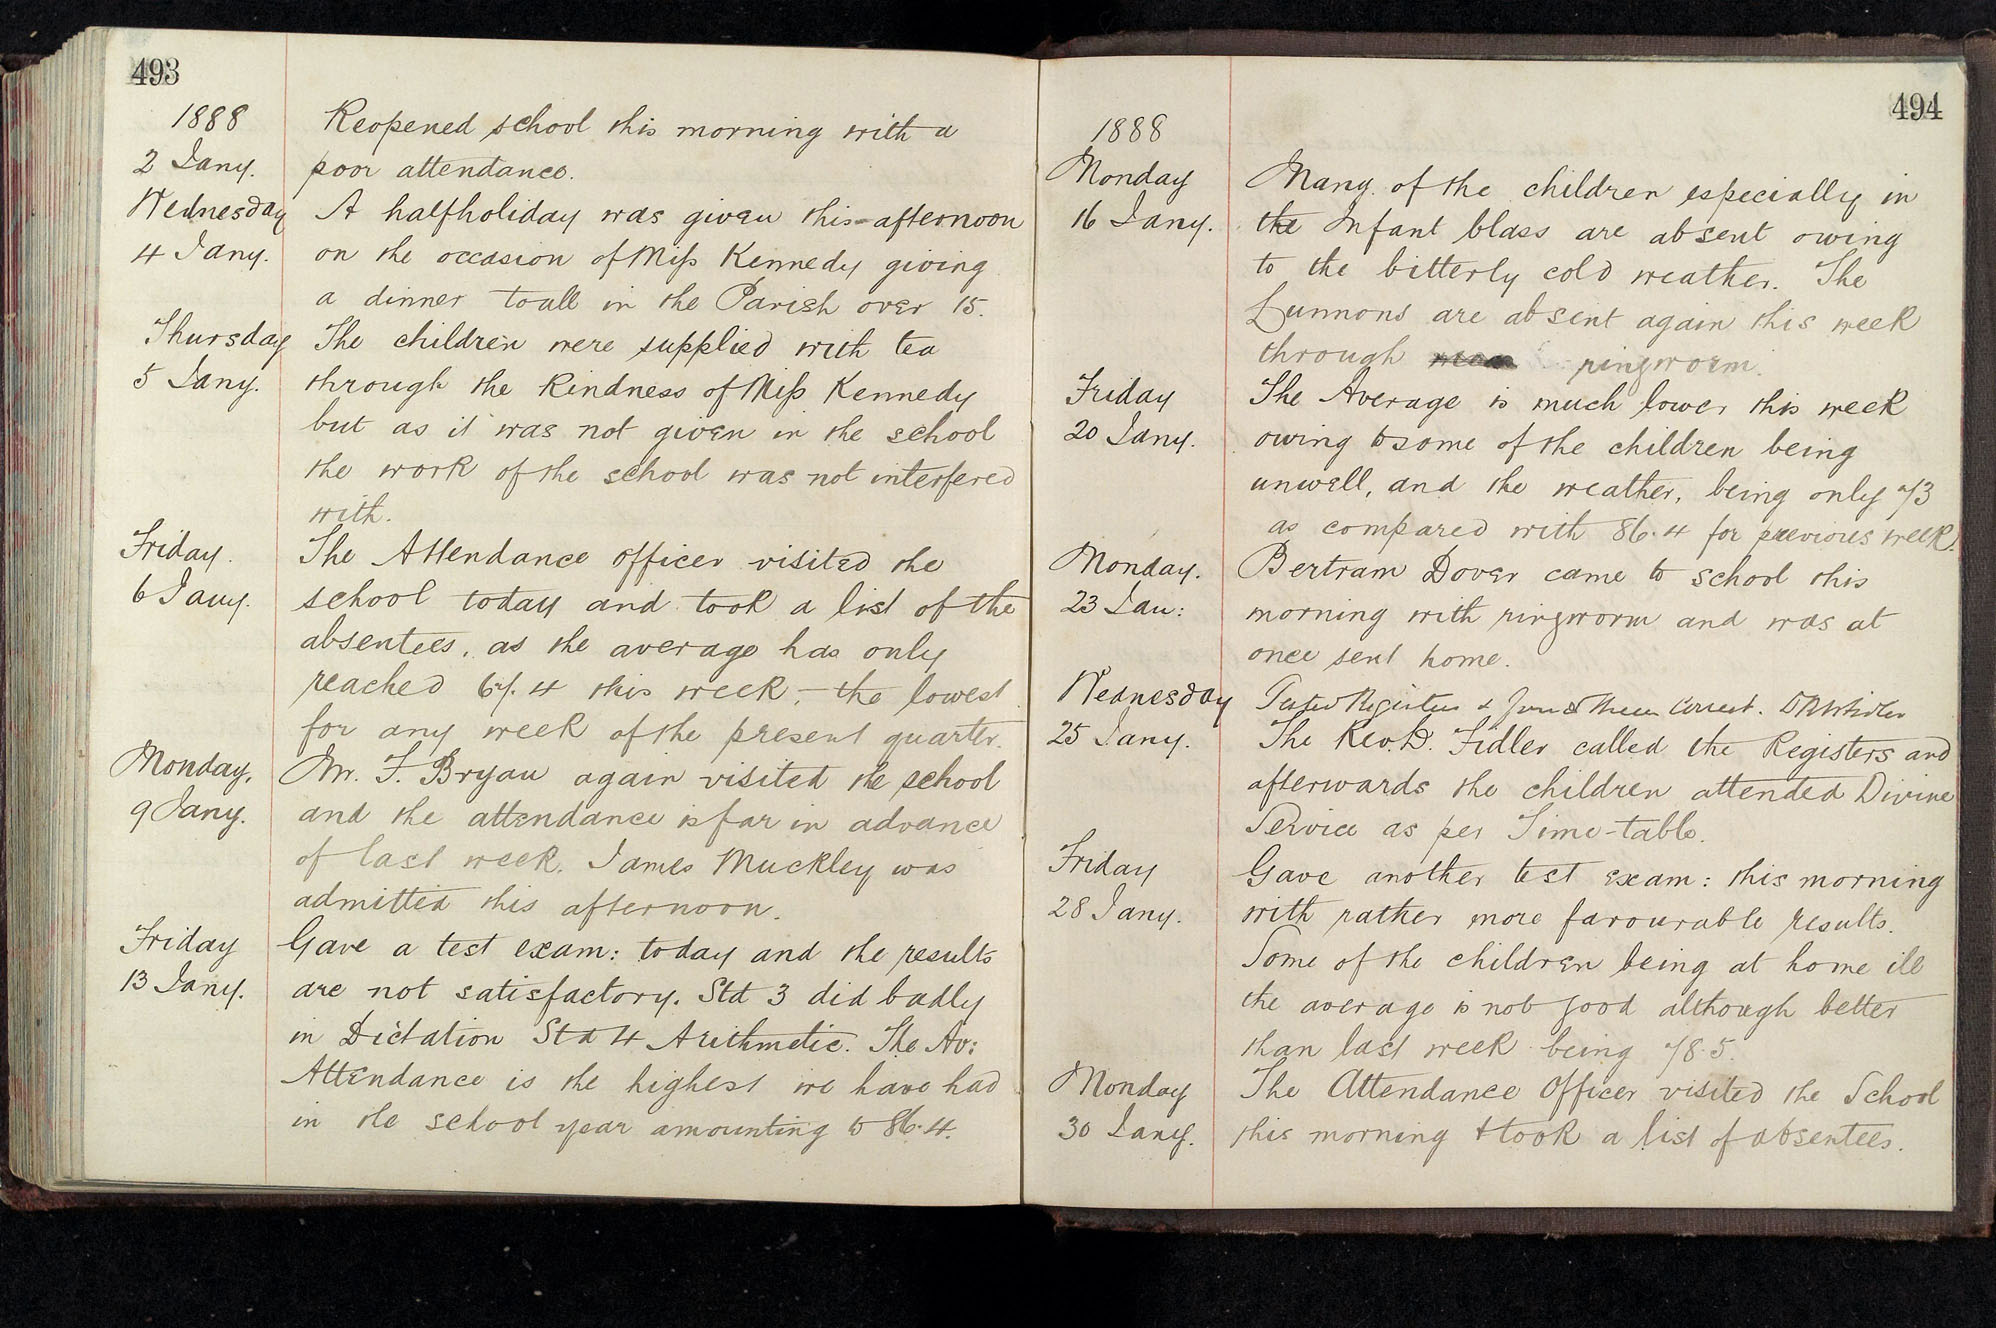 493
1888
2 Jany.
Reopened school this morning with a
poor attendance.
Wednesday
4 Jany.
A halfholiday was given this afternoon
on the occasion of Miss Kennedy giving
a dinner to all in the Parish over 15.
Thursday
5 Jany.
The children were supplied with tea
through the kindness of Miss Kennedy
but as it was not given in the school
the work of the school was not interfered
with.
Friday.
6 Jany.
The Attendance officer visited the
school today and took a list of the
absentees, as the average has only
reached 67.4 this week, - the lowest
for any week of the present quarter.
Monday,
9 Jany.
Mr. F. Bryan again visited the school
and the attendance is far in advance
of last week. James Muckley was
admitted this afternoon.
Friday
13 Jany.
Gave a test exam: today and the results
are not satisfactory. Std 3 did badly
in Dictation Std 4 Arithmetic. The Av:
Attendance is the highest we have had
in the school year amounting to 86.4.
494
1888
Monday
16 Jany.
Many of the children especially in
the Infant Class are absent owing
to the bitterly cold weather. The
Lunnons are absent again this week
through ringworm.
Friday
20 Jany.
The Average is much lower this week
owing to some of the children being
unwell, and the weather, being only 73
as compared with 86.4 for previous week.
Monday.
23 Jan:
Bertram Dover came to school this
morning with ringworm and was at
once sent home.
Wednesday
25 Jany.
Tested Registers & found them Correct.
The Rev. D. Fidler called the Registers and
afterwards the children attended Divine
Service as per Time-table.
Friday
28 Jany.
Gave another test exam: this morning
with rather more favourable results.
Some of the children being at home ill
the average is not good although better
than last week being 78.5.
Monday
30 Jany.
The Attendance Officer visited the School
this morning & took a list of absentees.